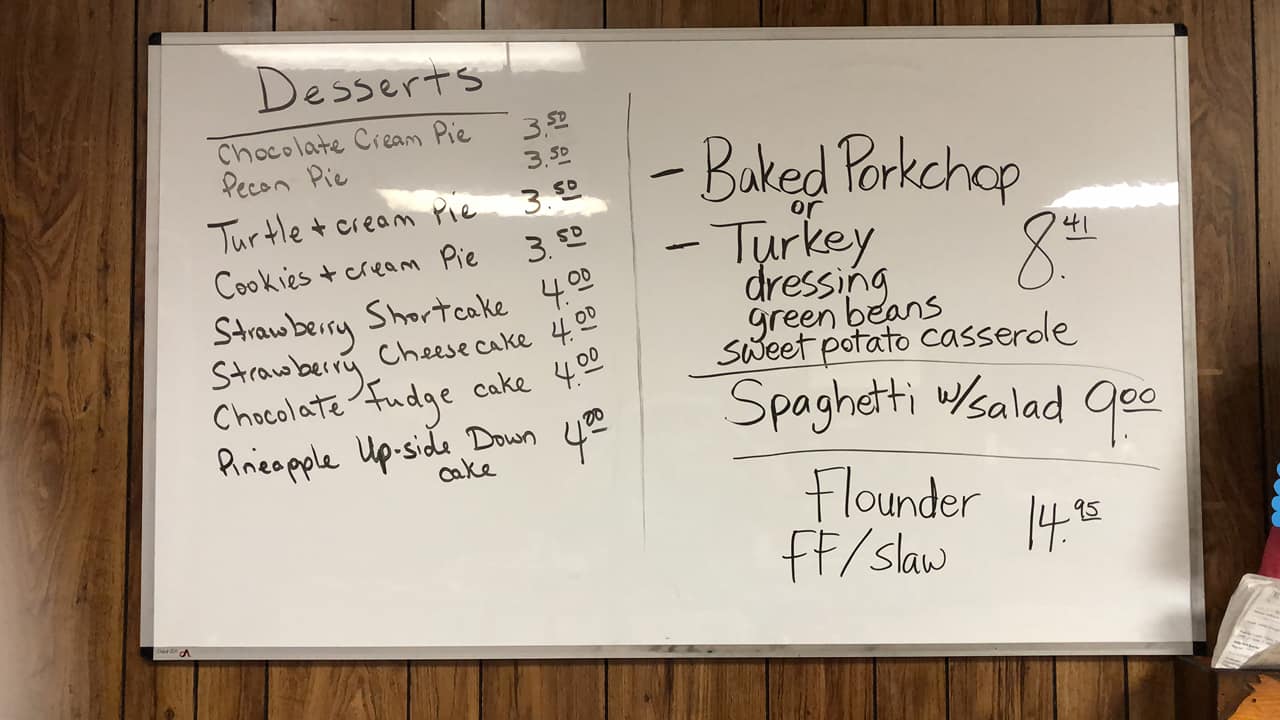 Desserts
Chocolate Cream Pie 3.50
Pecan Pie 3.50
Turtle + cream Pie 3.50
Cookies + cream Pie 3.50
Strawberry Shortcake 4.00
Strawberry Cheesecake 4.00
Chocolate Fudge cake 4.00
Pineapple Up-side Down 4.00
cake
- Baked Porkchop
or
- Turkey 8.41
dressing
green beans
sweet potato casserole
Spaghetti w/salad 9.00
Flounder 14.95
FF/slaw